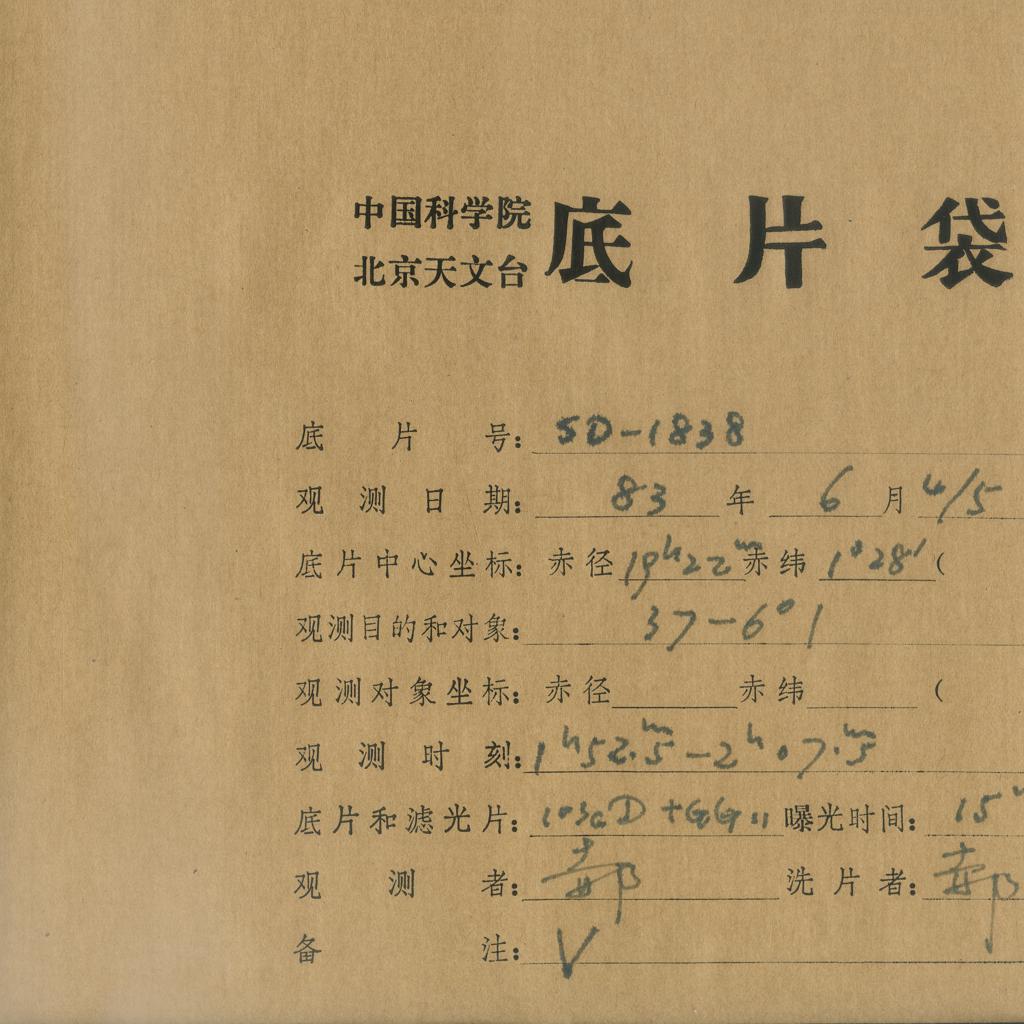 中国科学院
北京天文台
底片袋
底片号: SD-1838
观测日期: 83年 6月 4/5
底片中心坐标: 赤径 19ʰ22ᵐ 赤纬 1°28′ (
观测目的和对象: 37-6°1
观测对象坐标: 赤径 赤纬 (
观测时刻: 1ʰ52.ᵐ5-2ʰ07.ᵐ5
底片和滤光片: 103aD+GG11 曝光时间: 15
观测者: 郝 洗片者: 郝
备注: V